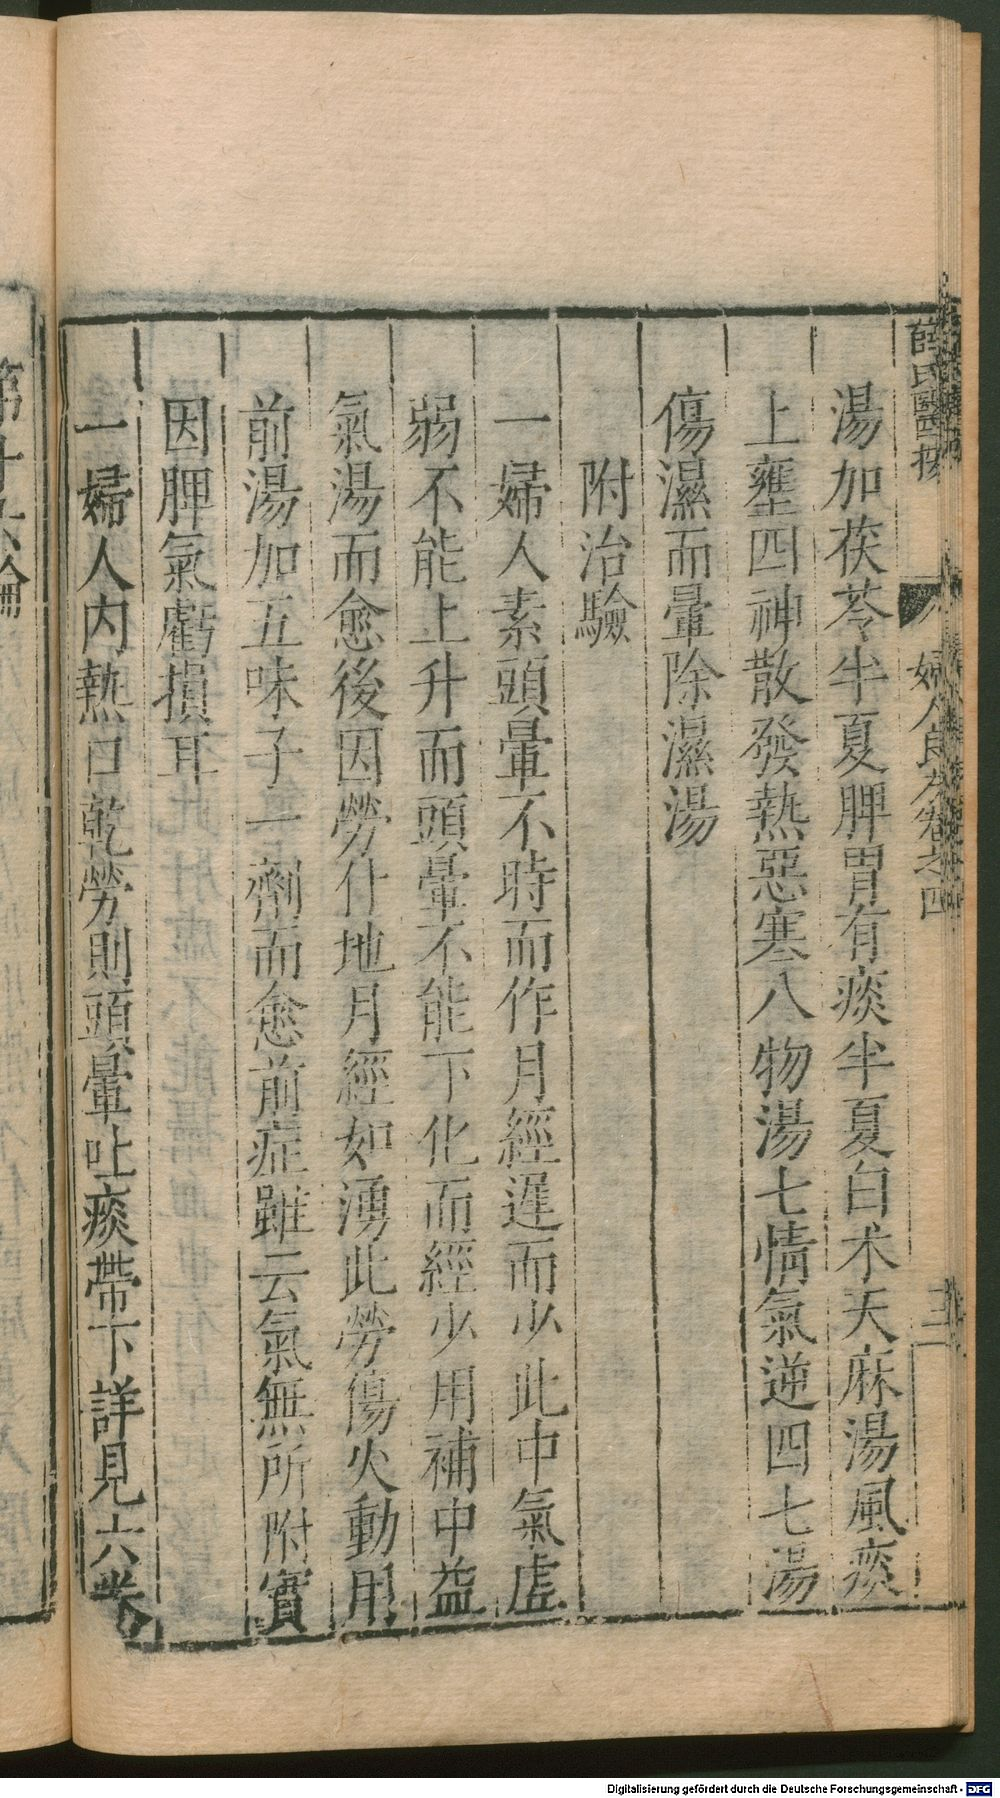 薛氏醫按
婦人良方卷之四
湯加茯苓半夏脾胃有痰半夏白朮天麻湯風痰
上壅四神散發熱惡寒八物湯七情氣逆四七湯
傷濕而暈除濕湯
附治驗
一婦人素頭暈不時而作月經遲而少此中氣虛
弱不能上升而頭暈不能下化而經少用補中益
氣湯而愈後因勞仆地月經如湧此勞傷火動用
前湯加五味子一劑而愈前症雖云氣無所附實
因脾氣虧損耳
一婦人內熱口乾勞則頭暈吐痰帶下詳見六卷
Digitalisierung gefördert durch die Deutsche Forschungsgemeinschaft - DFG